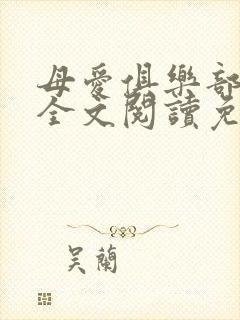 母愛俱樂部
全文閱讀免
吳蘭